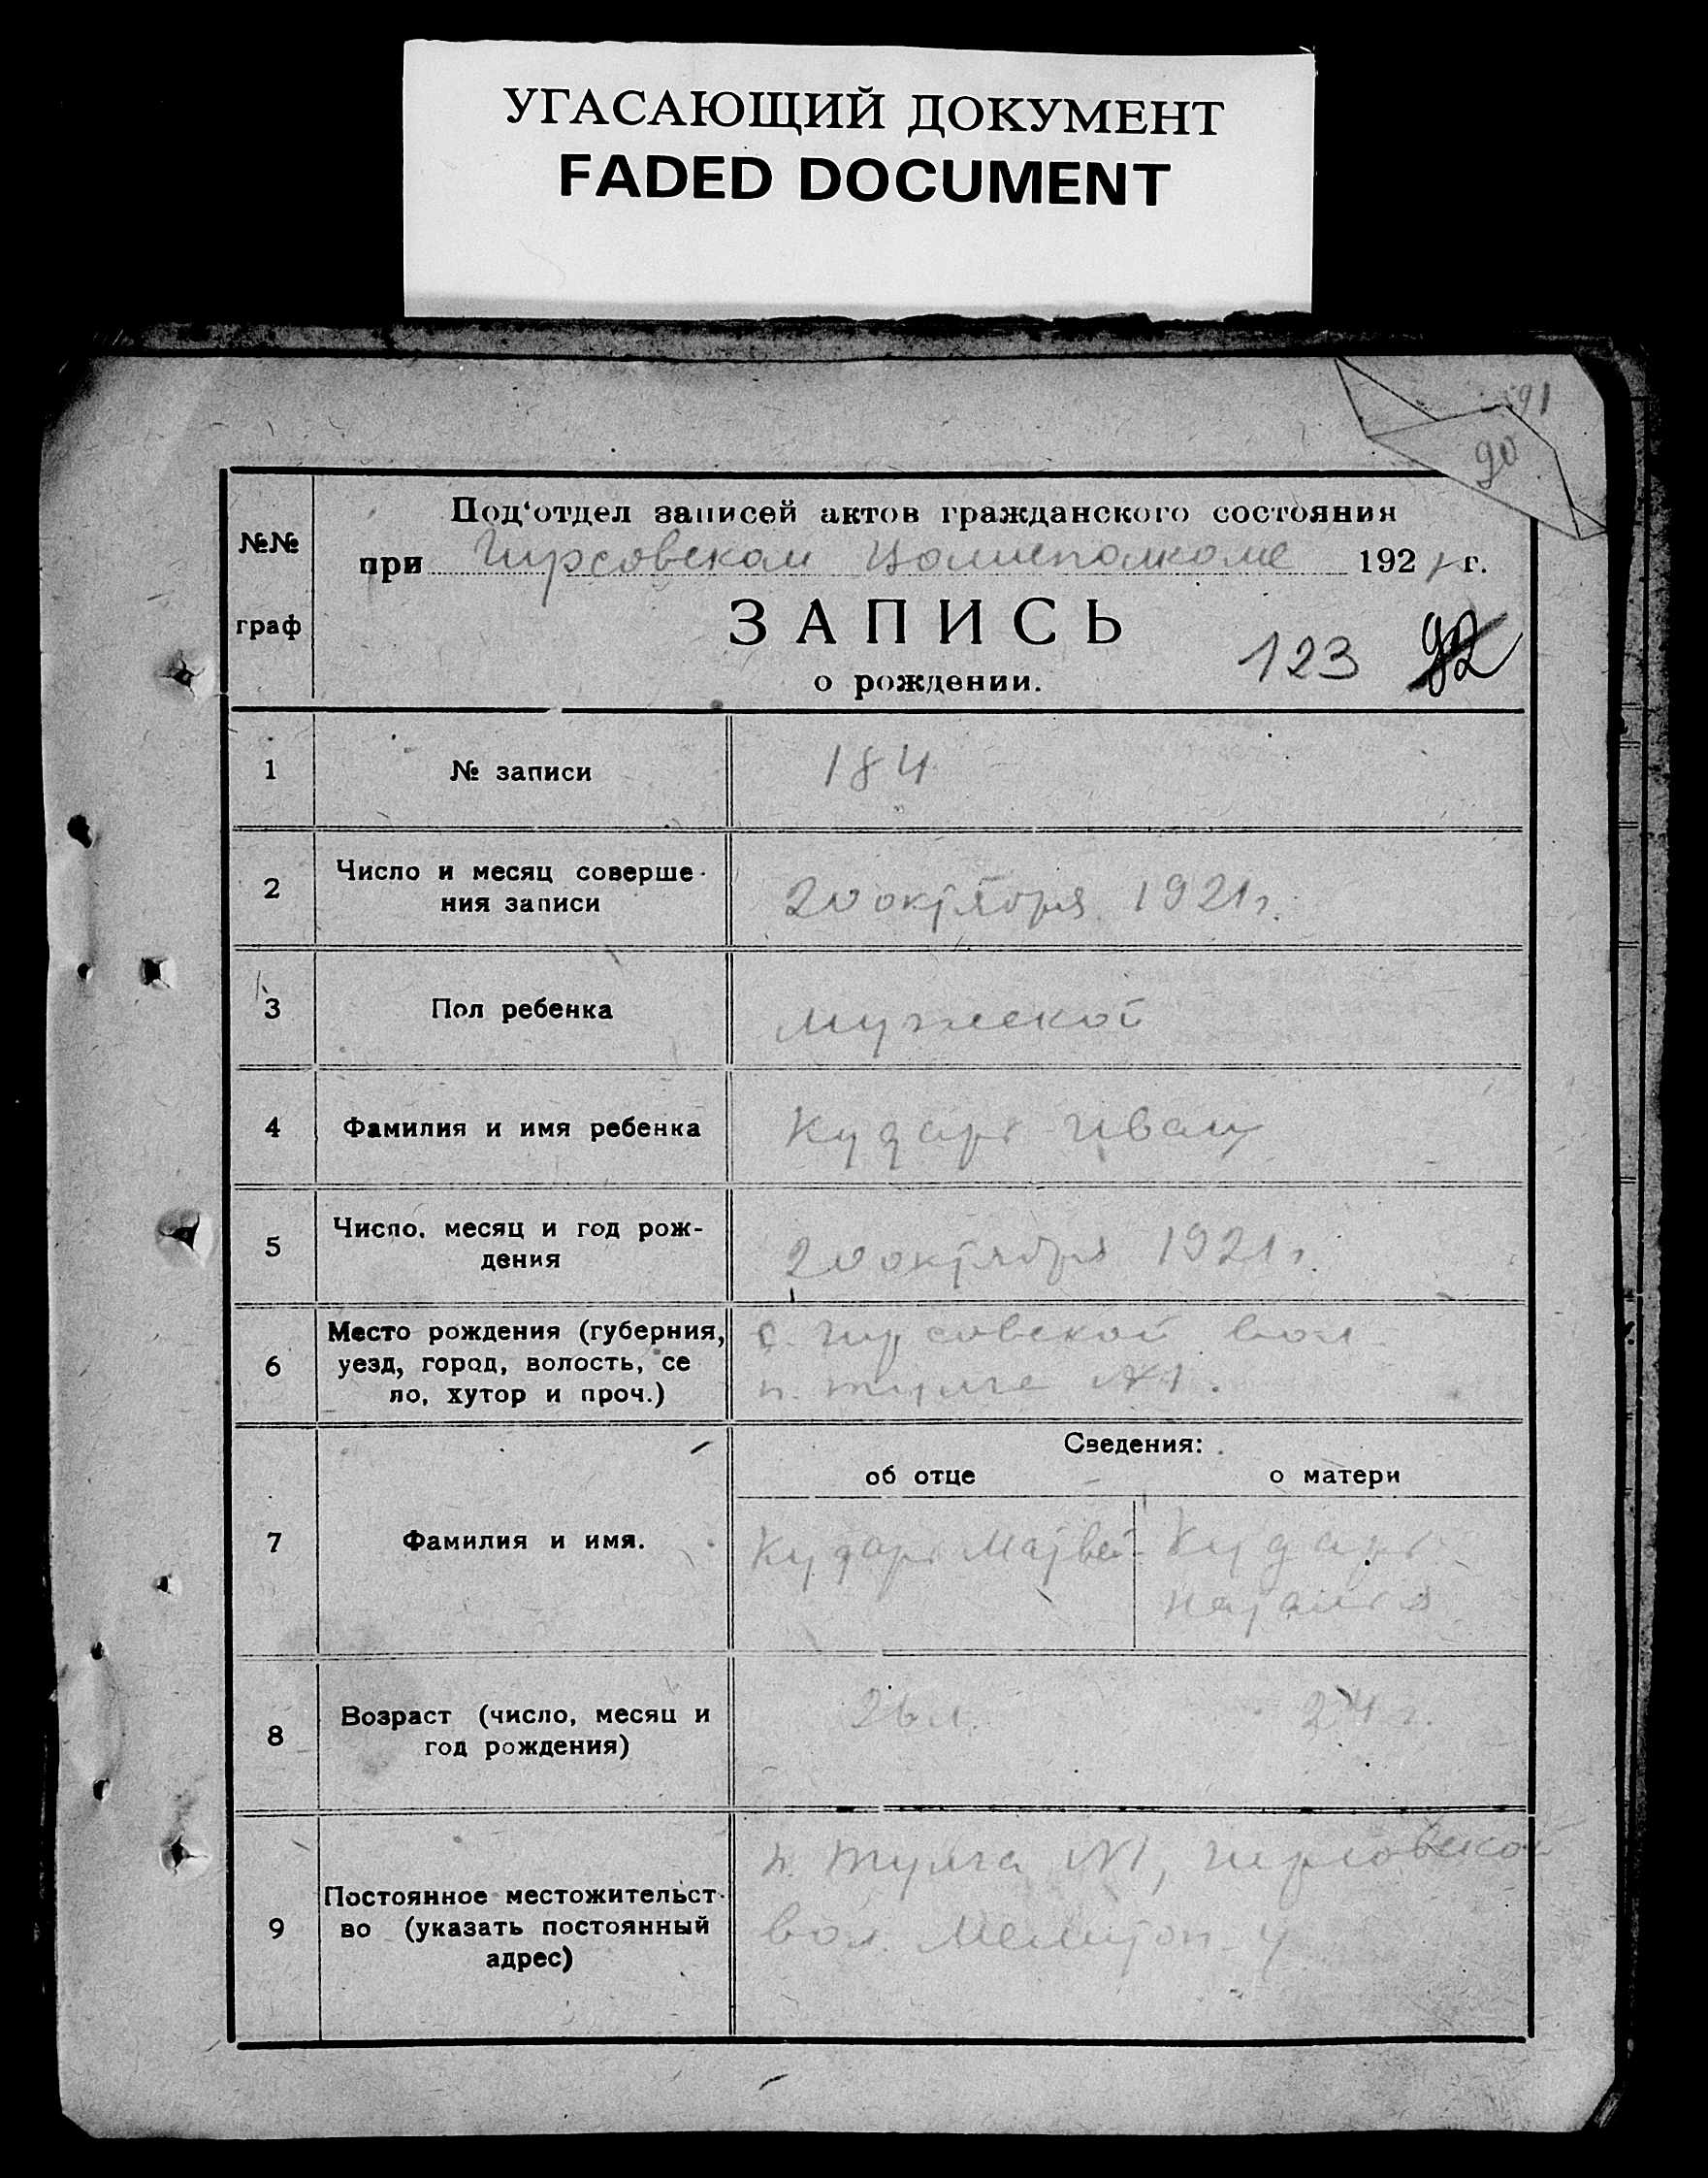 УГАСАЮЩИЙ ДОКУМЕНТ
FADED DOCUMENT
91
90
№№
граф
Под‘отдел записей актов гражданского состояния
при Гирсовском Волисполкоме 1921 г.
ЗАПИСЬ
о рождении.
123 92
1 № записи 184
2 Число и месяц соверше-
ния записи
20 октября 1921 г.
3 Пол ребенка мужской
4 Фамилия и имя ребенка Кударь Иван
5 Число, месяц и год рож-
дения
20 октября 1921 г.
6 Место рождения (губерния,
уезд, город, волость, се
ло, хутор и проч.)
с. Гирсовской вол
п. №1.
Сведения:
об отце о матери
7 Фамилия и имя.
Кударь Матвей
Кударь
Наталья
8 Возраст (число, месяц и
год рождения)
26 л. 24 г.
9 Постоянное местожительст-
во (указать постоянный
адрес)
п. №1, Гирсовской
вол. Мелитоп у